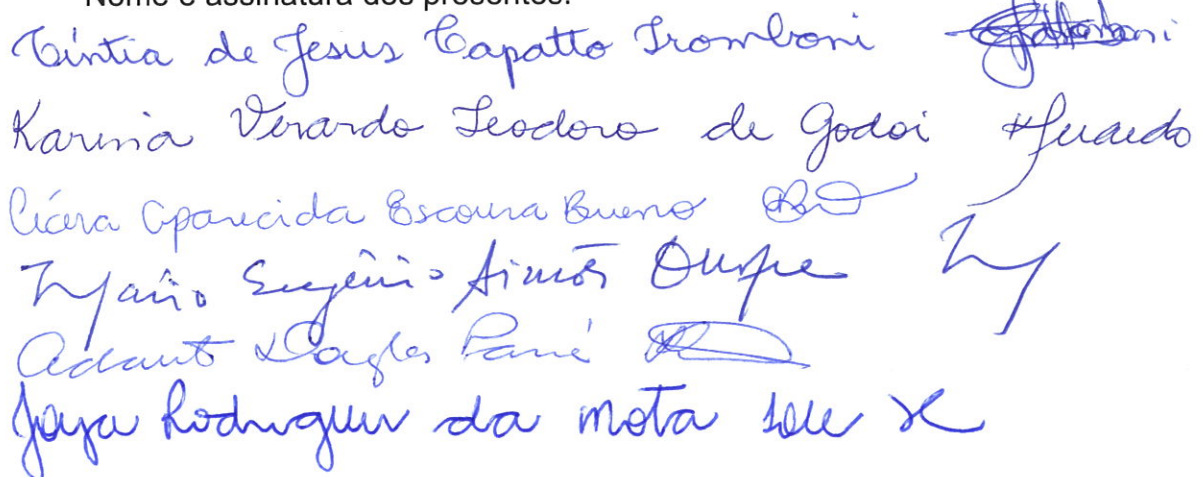 Nome e assinatura dos presentes:
Cíntia de Jesus Capatto Tromboni
Karina Verardo Teodoro de Godoi
Cícera Aparecida Escoura Bueno
Mário Eugênio Simões
Adauto
Rodrigues da Mota